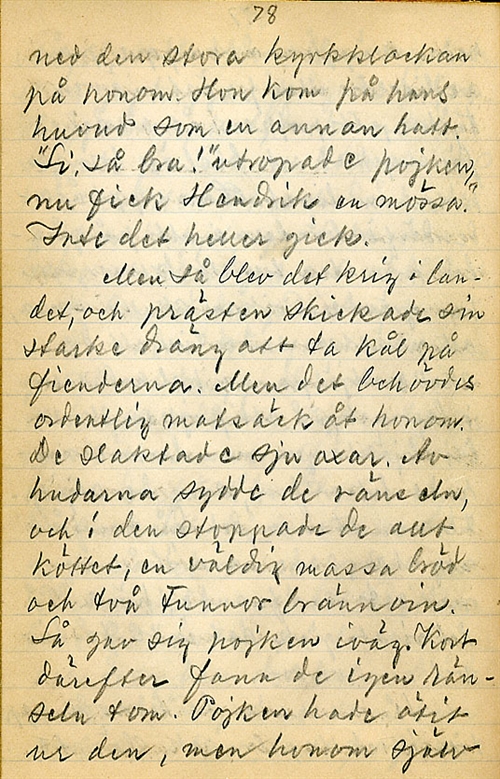 78
ned den stora kyrkklockan
på honom. Hon kom på hans
huvud som en annan hatt.
"Si, så bra!" utropade pojken,
nu fick Hendrik en mössa."
Inte det heller gick.
Men så blev det krig i lan-
det, och prästen skickade sin
starke dräng att ta kål på
fienderna. Men det behövdes
ordentlig matsäck åt honom.
De slaktade sju oxar. Av
hudarna sydde de ränseln,
och i den stoppade de allt
köttet, en väldig massa bröd
och två tunnor brännvin.
Så gav sig pojken iväg. Kort
därefter fann de igen rän-
seln tom. Pojken hade ätit
ur den, men honom själv